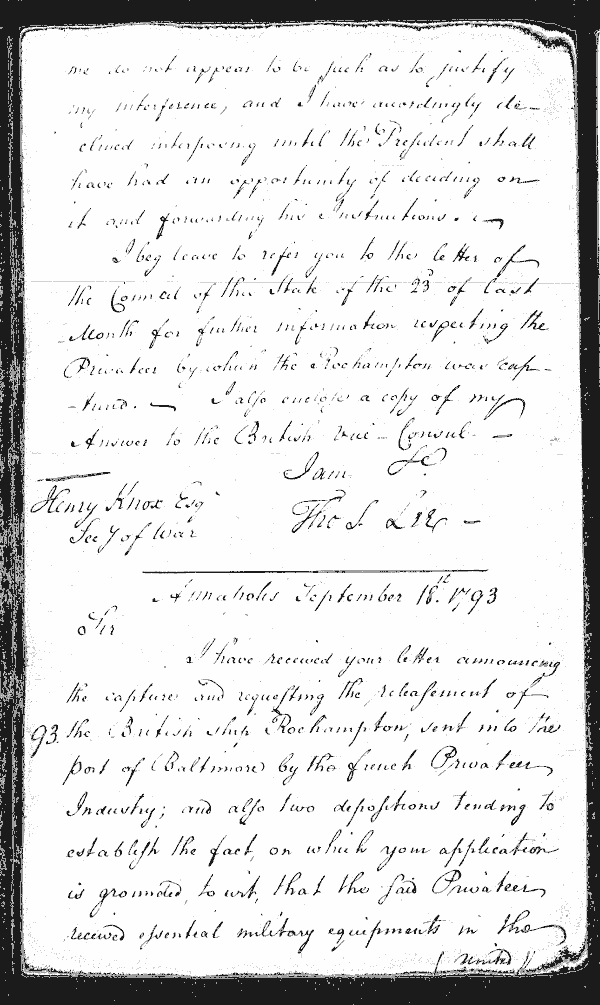 me do not appear to be such as to justify
my interference, and I have accordingly de-
clined interposing until the President shall
have had an opportunity of deciding on
it and forwarding his Instructions. -
I beg leave to refer you to the letter of
the Council of this State of the 23d of last
Month for further information respecting the
Privateer by which the Roehampton was cap-
-tured. - I also enclose a copy of my
Answer to the British Vice-Consul. -
I am &c
Henry Knox Esqr
Secy of War
Tho S. Lee -
Annapolis September 18. 1793
Sir
I have received your letter announcing
the capture and requesting the releasement of
93. the British ship Roehampton, sent into the
port of Baltimore by the french Privateer
Industry; and also two depositions tending to
establish the fact, on which your application
is grounded, to wit, that the said Privateer
received essential military equipments in the
(United)